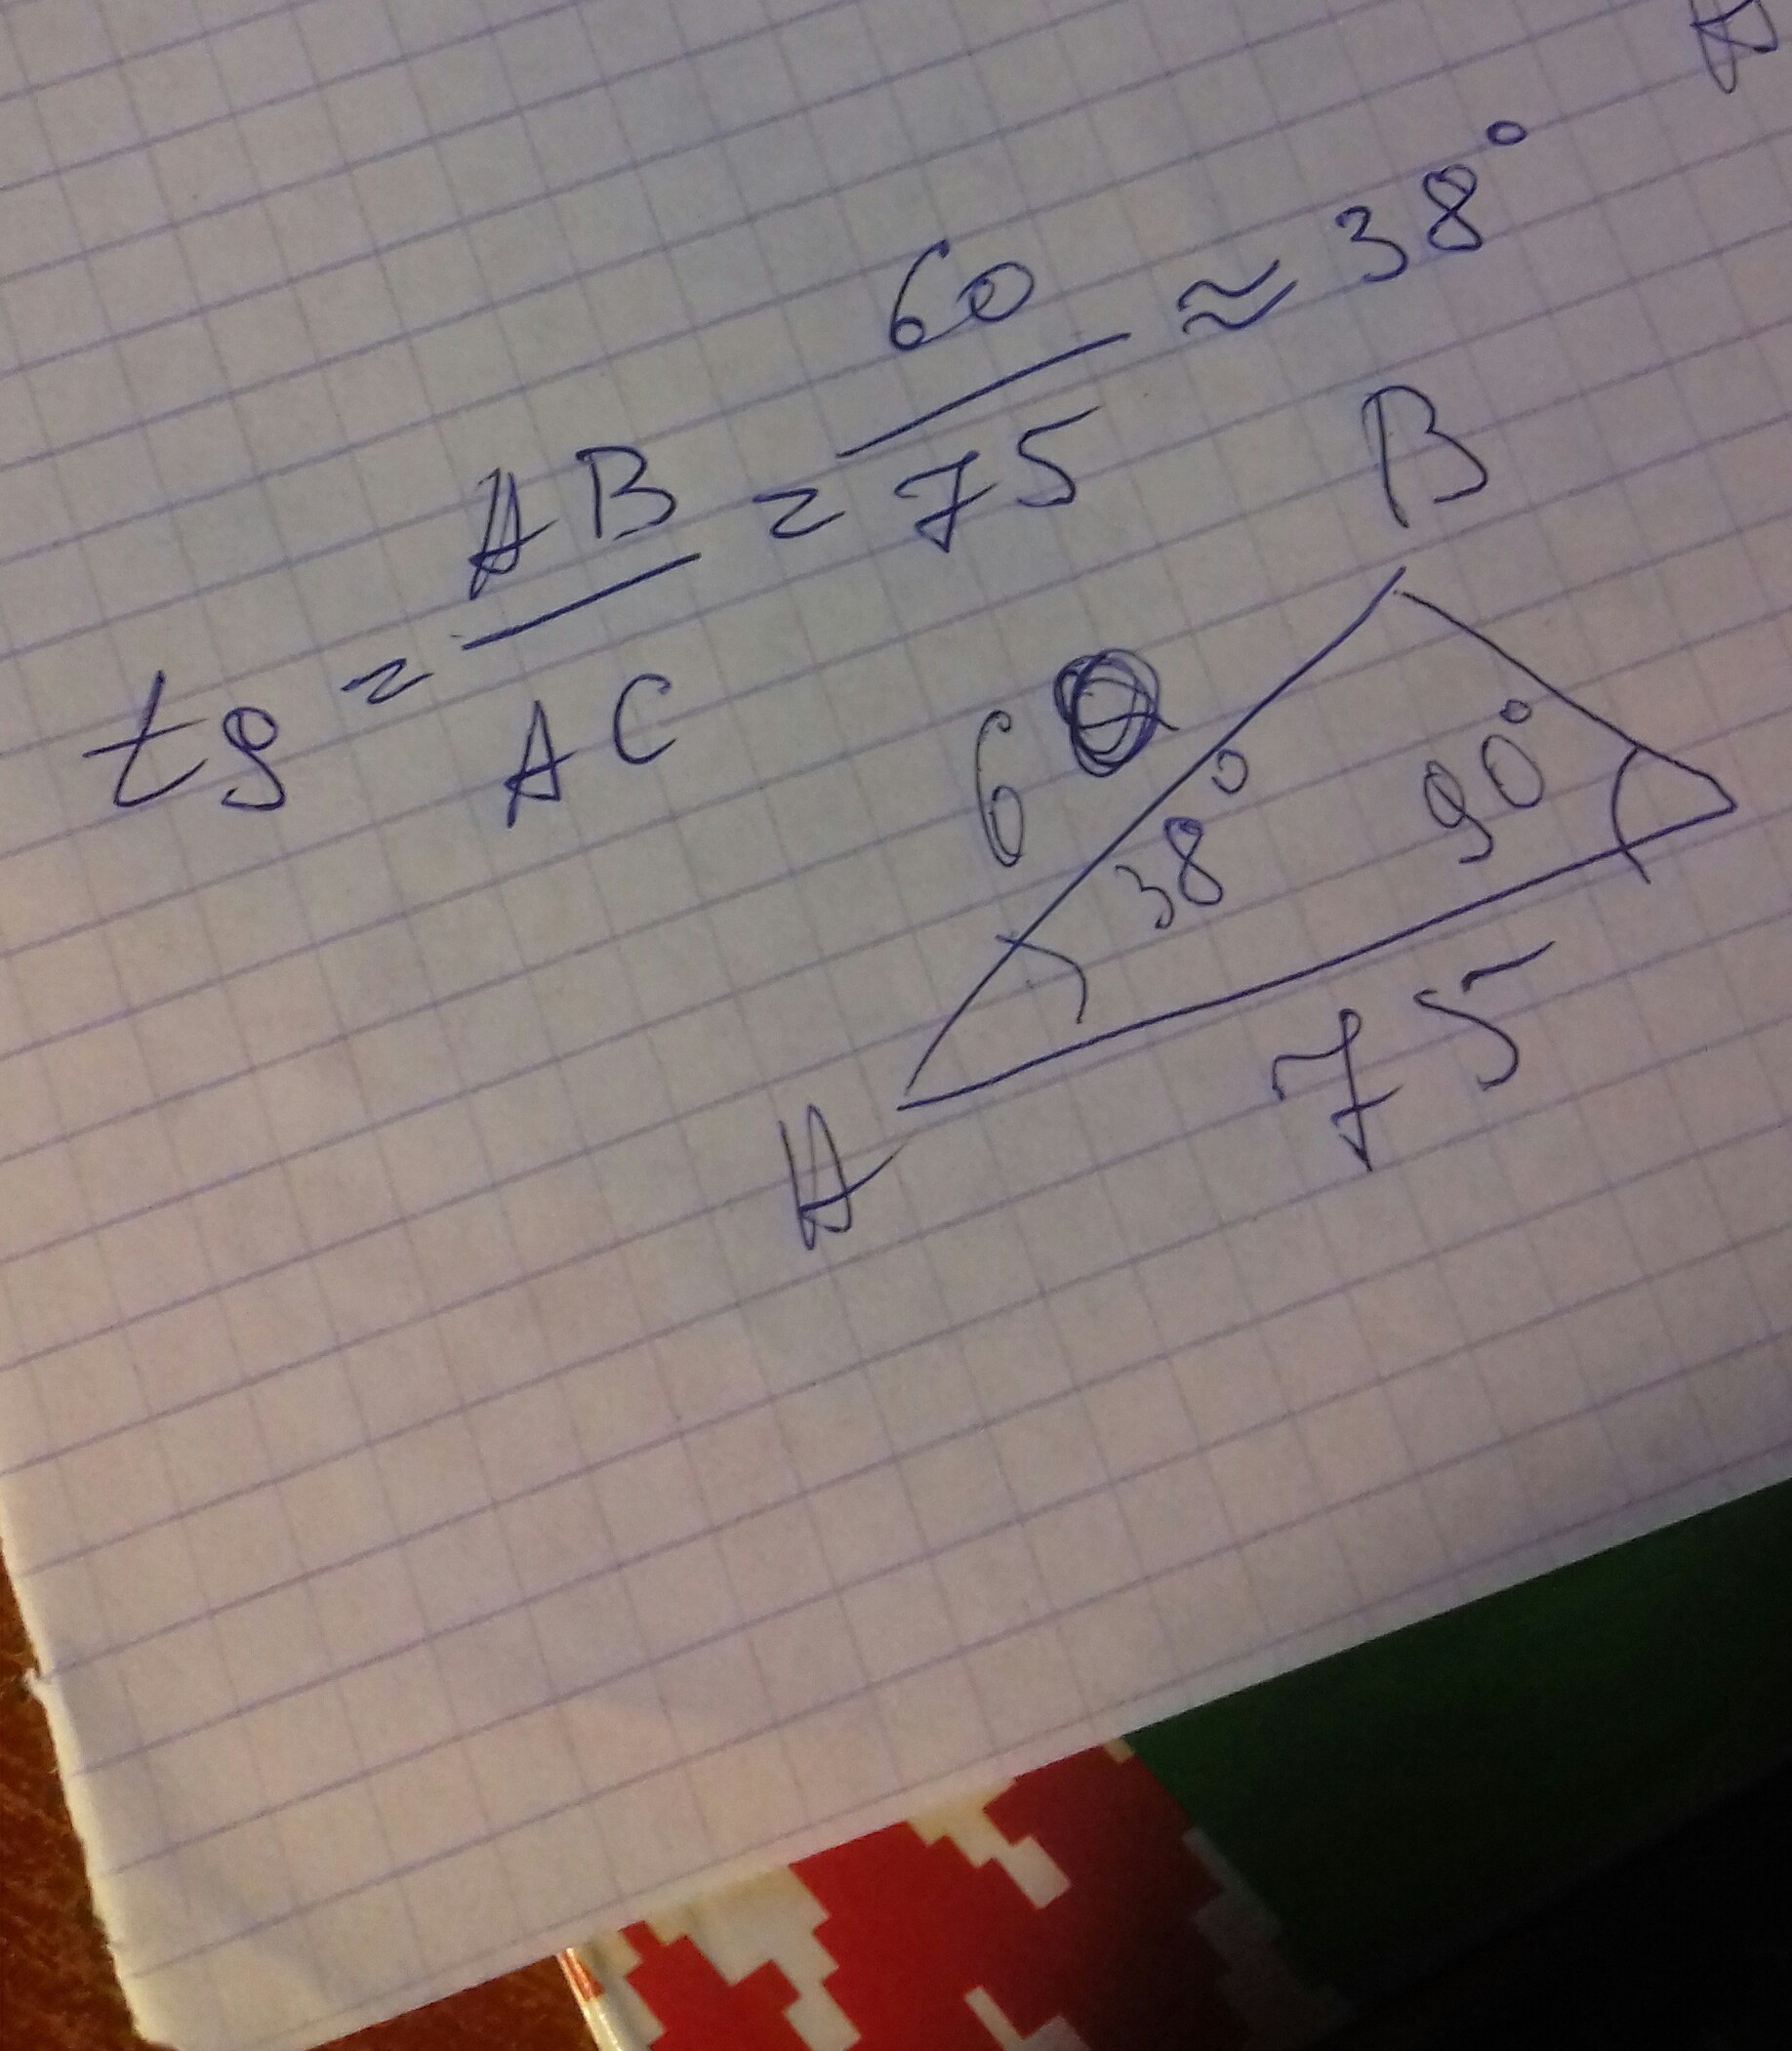 tg = AB / AC = 60 / 75 ≈ 38°
B
60
38°
90°
A
75